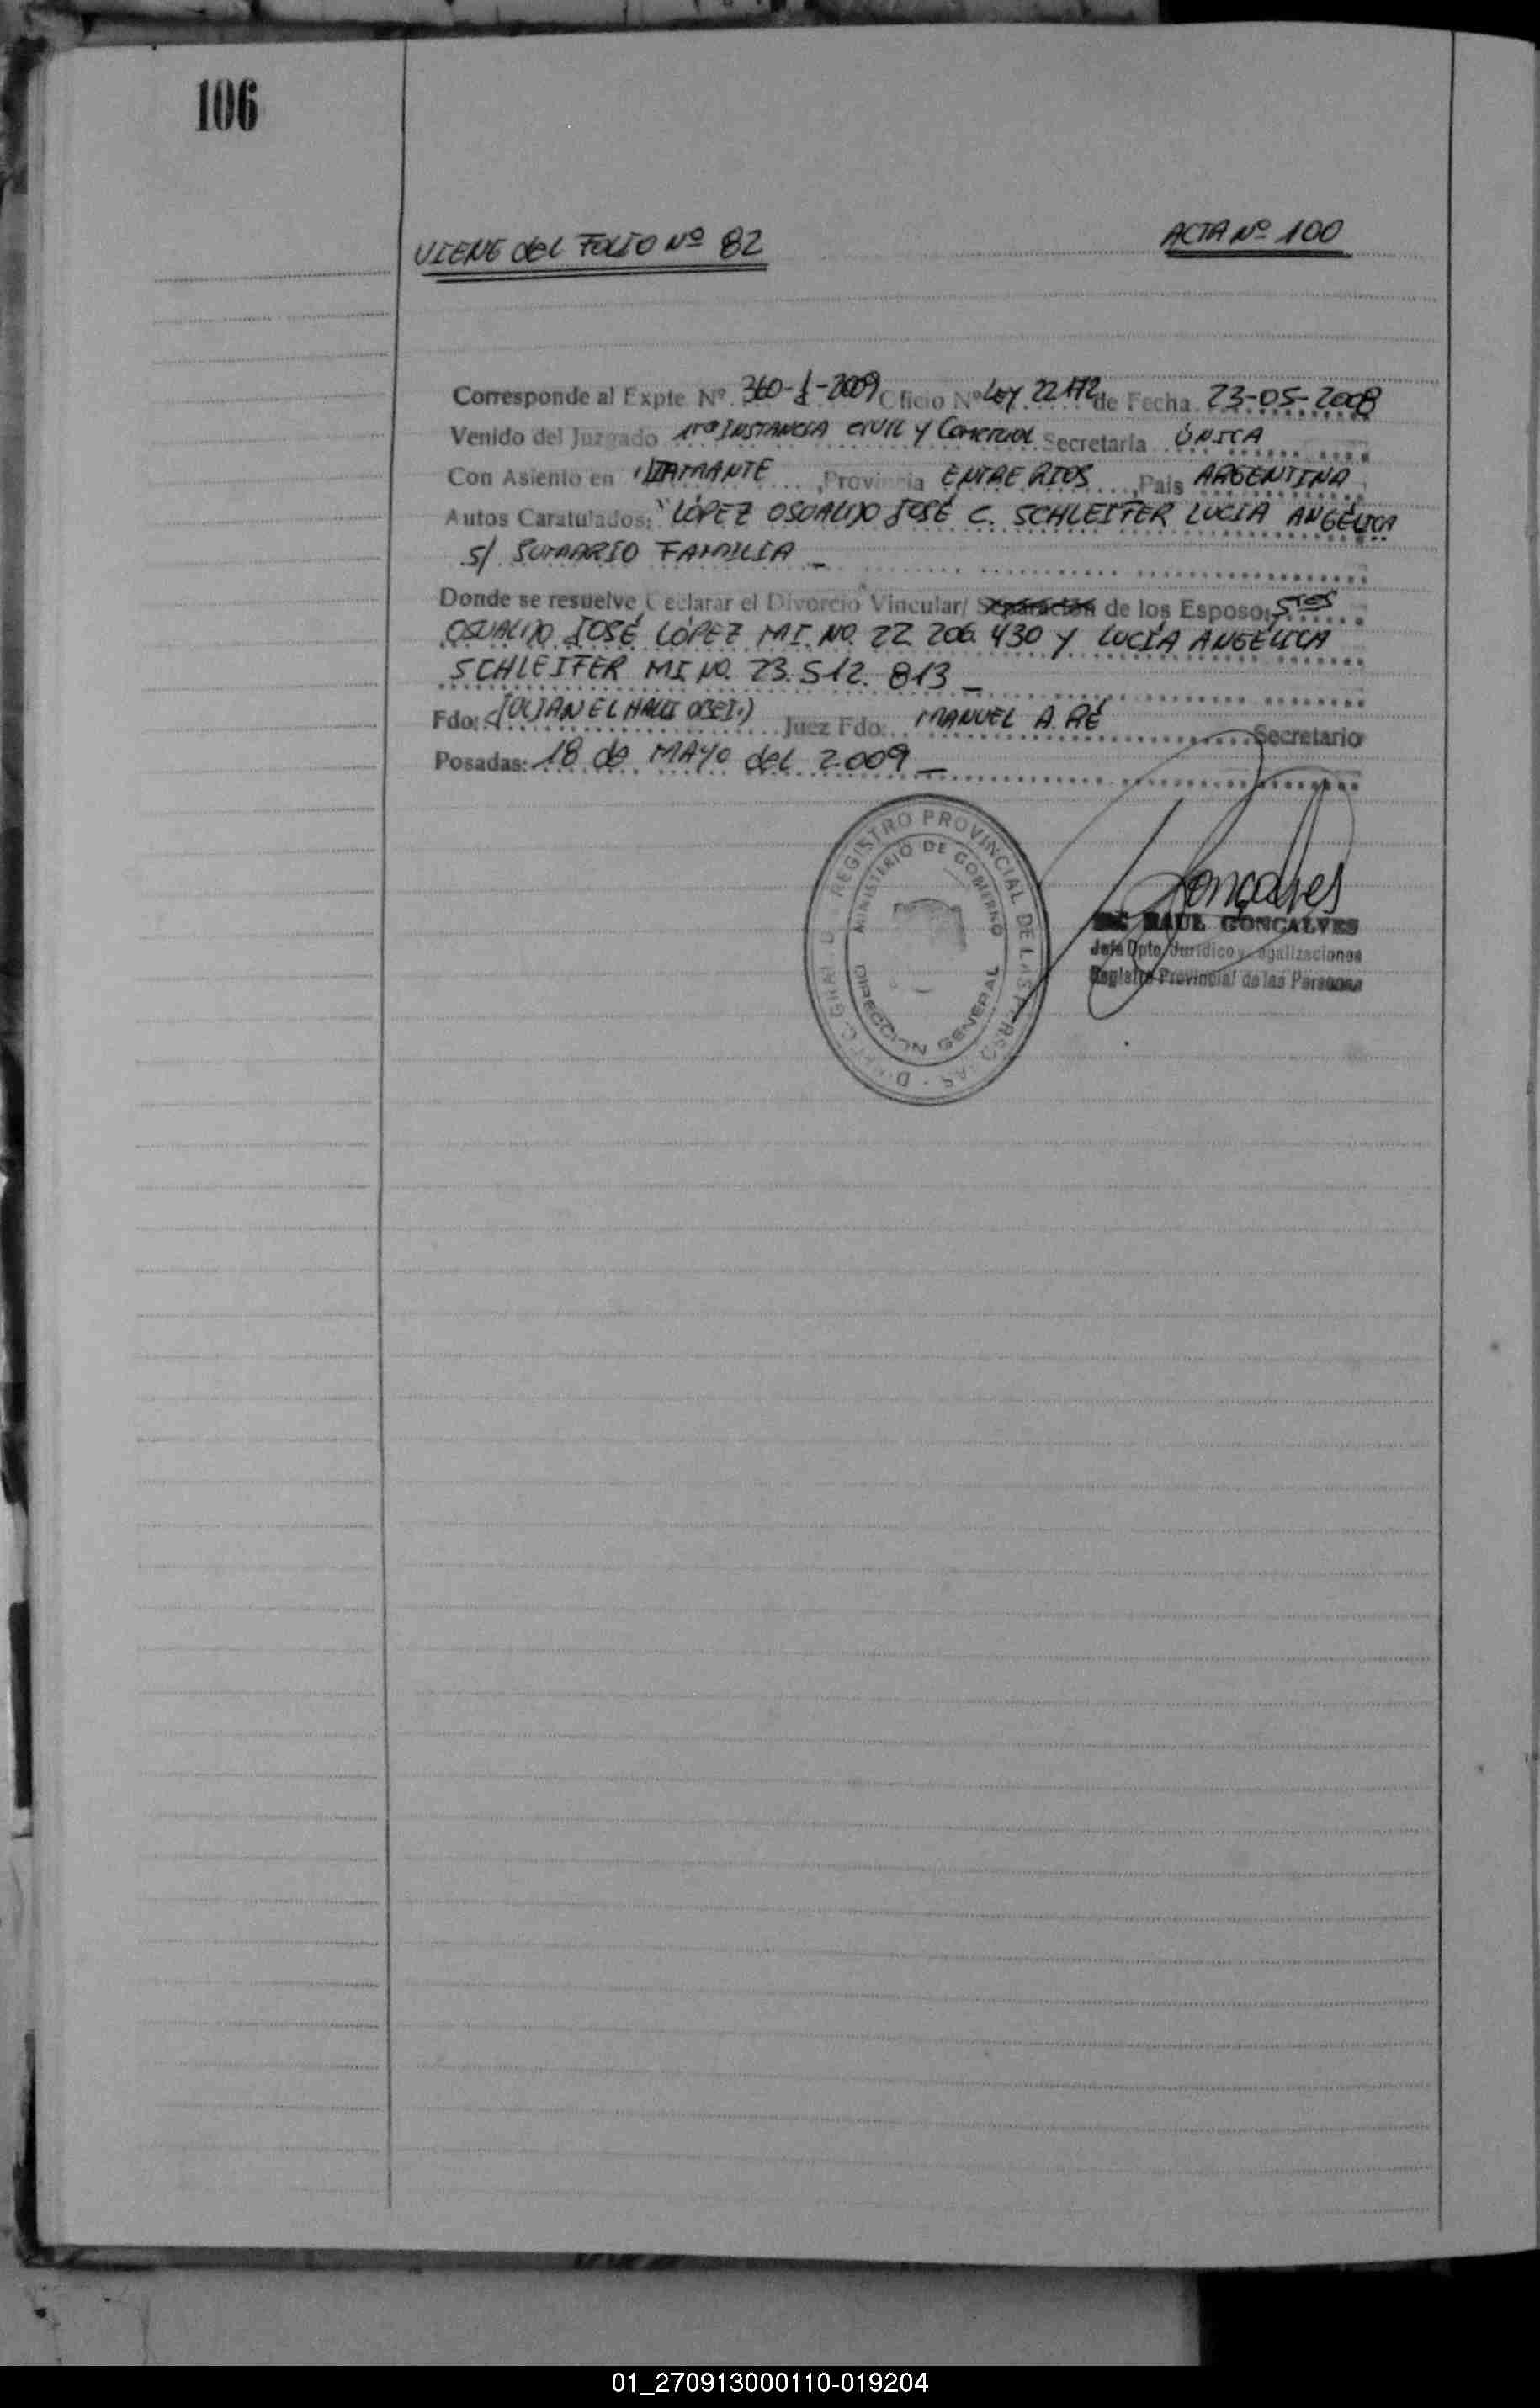 106
VIENE del FOLIO Nº 82
ACTA Nº 100
Corresponde al Expte Nº 360-J-2009 Oficio Nº Ley 22172 de Fecha 23-05-2008
Venido del Juzgado 1ra INSTANCIA CIVIL Y COMERCIAL Secretaria ÚNICA
Con Asiento en DIAMANTE, Provincia ENTRE RIOS, Pais ARGENTINA
Autos Caratulados: "LÓPEZ OSVALDO JOSÉ C. SCHLEIFER LUCIA ANGÉLICA
S/ SUMARIO FAMILIA -
Donde se resuelve Declarar el Divorcio Vincular/ Separación de los Esposos Sres
OSVALDO JOSÉ LÓPEZ MI. NO. 22.206.430 Y LUCÍA ANGÉLICA
SCHLEIFER MI NO. 23.512.813 -
Fdo: JULIAN EL Juez Fdo: MANUEL A. RÉ Secretario
Posadas: 18 de MAYO del 2009 -
REGISTRO PROVINCIAL DE LAS PERSONAS
MINISTERIO DE GOBIERNO
DIRECCION GENERAL
Gonçalves
RAUL GONCALVES
Jefe Dpto. Juridico y Legalizaciones
Registro Provincial de las Personas
01_270913000110-019204